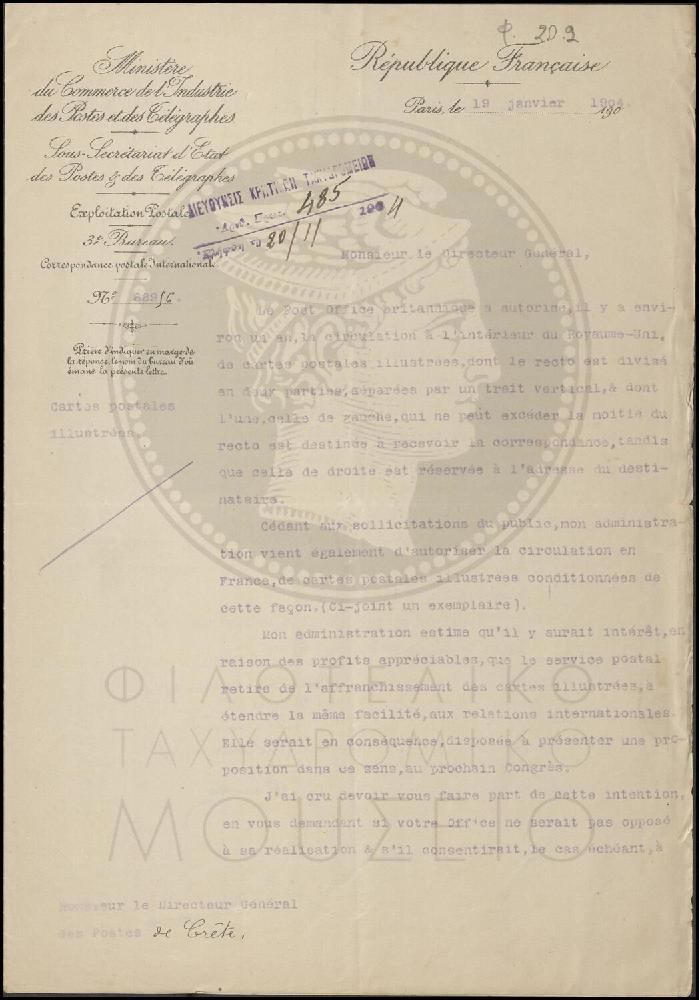 φ. 20.2
Ministère
du Commerce de l'Industrie
des Postes et des Télégraphes
Sous-Secrétariat d'Etat
des Postes & des Télégraphes
Exploitation Postale
3e Bureau.
Correspondance postale Internationale
No
Prière d'indiquer en marge de
la réponse, le nom du bureau d'où
émane la présente lettre.
Cartes postales
illustrées.
République Française
Paris, le 19 janvier 1904. 190
ΔΙΕΥΘΥΝΣΙΣ ΚΡΗΤΙΚΩΝ ΤΑΧΥΔΡΟΜΕΙΩΝ
Αριθ. Πρωτ. 485 190 4
20/11
Monsieur le Directeur Général,
Le Post Office britannique a autorisé, il y a envi-
ron un an, la circulation à l'intérieur du Royaume-Uni,
de cartes postales illustrées, dont le recto est divisé
en deux parties, séparées par un trait vertical, & dont
l'une, celle de gauche, qui ne peut excéder la moitié du
recto est destinée à recevoir la correspondance, tandis
que celle de droite est réservée à l'adresse du desti-
nataire.
Cédant aux sollicitations du public, mon administra-
tion vient également d'autoriser la circulation en
France, de cartes postales illustrées conditionnées de
cette façon. (Ci-joint un exemplaire).
Mon administration estime qu'il y aurait intérêt, en
raison des profits appréciables, que le service postal
retire de l'affranchissement des cartes illustrées, à
étendre la même facilité, aux relations internationales.
Elle serait en conséquence, disposée à présenter une pro-
position dans ce sens, au prochain Congrès.
J'ai cru devoir vous faire part de cette intention,
en vous demandant si votre Office ne serait pas opposé
à sa réalisation & s'il consentirait, le cas échéant, à
Monsieur le Directeur Général
des Postes de Crète.
ΦΙΛΟΤΕΛΙΚΟ
ΤΑΧΥΔΡΟΜΙΚΟ
ΜΟΥΣΕΙΟ